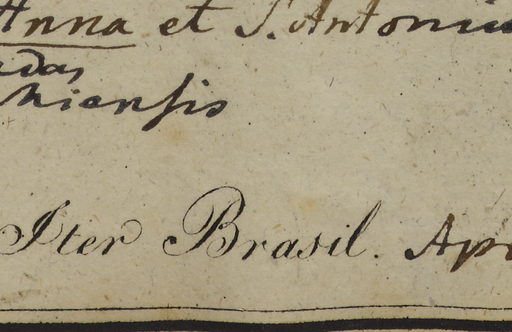 Anna et S. Antoniu
adas
hiensis
Iter Brasil. Apr